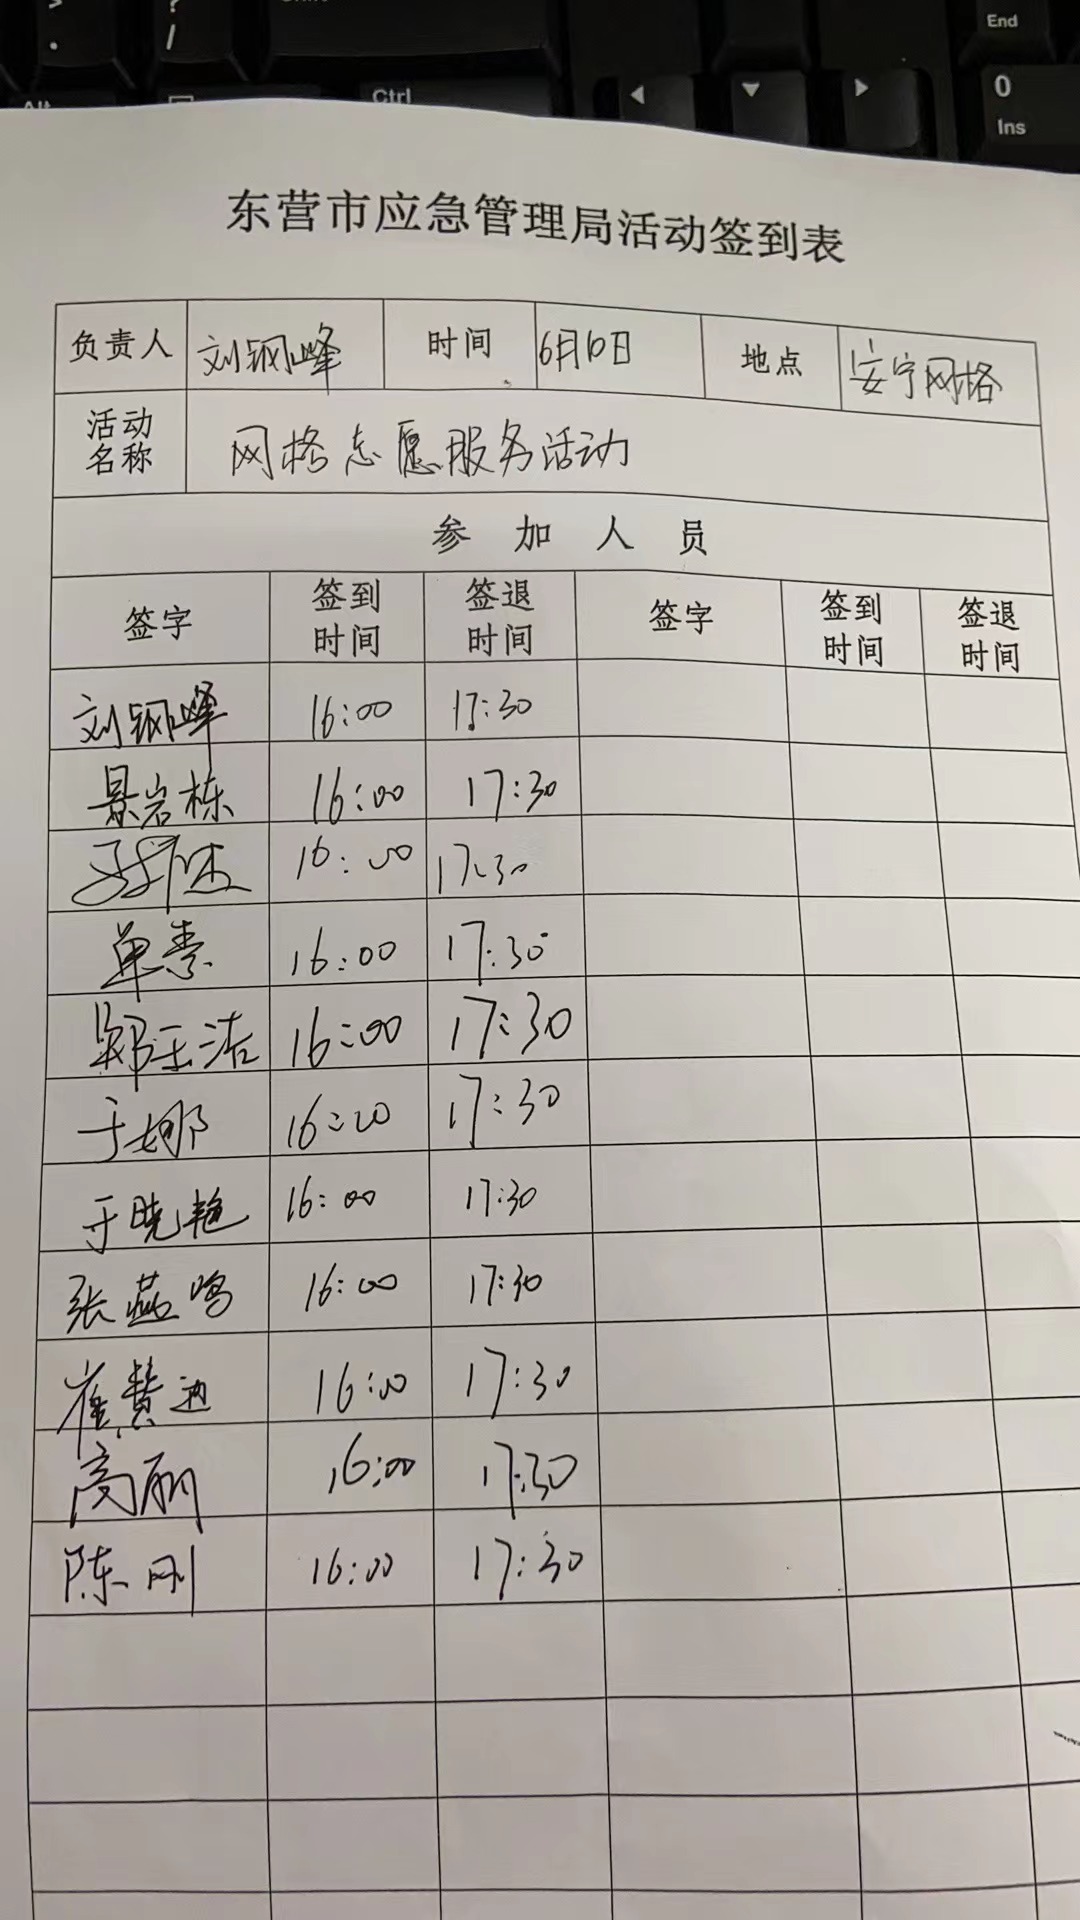 End
Alt
Ctrl
0
Ins
东营市应急管理局活动签到表
负责人 刘钢峰 时间 6月10日 地点 安宁网格
活动名称 网格志愿服务活动
参加人员
签字 签到时间 签退时间 签字 签到时间 签退时间
刘钢峰 16:00 17:30
景岩栋 16:00 17:30
16:00 17:30
单素 16:00 17:30
郑玉洁 16:00 17:30
于娜 16:00 17:30
于晓艳 16:00 17:30
张燕鸣 16:00 17:30
崔 16:00 17:30
高丽 16:00 17:30
陈刚 16:00 17:30